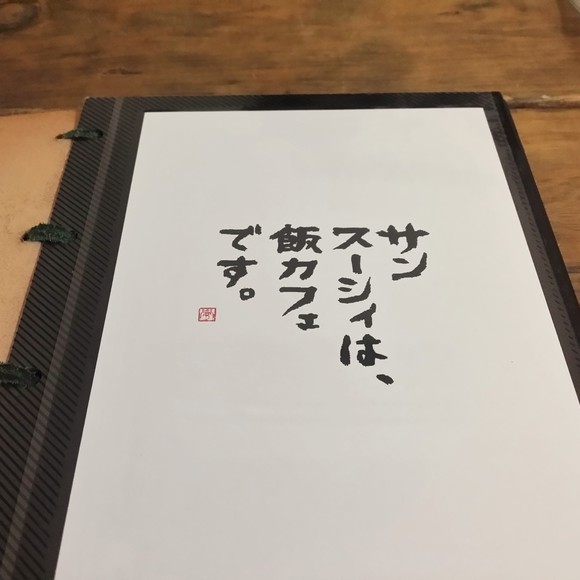 サン
スーシィは、
飯カフェ
です。